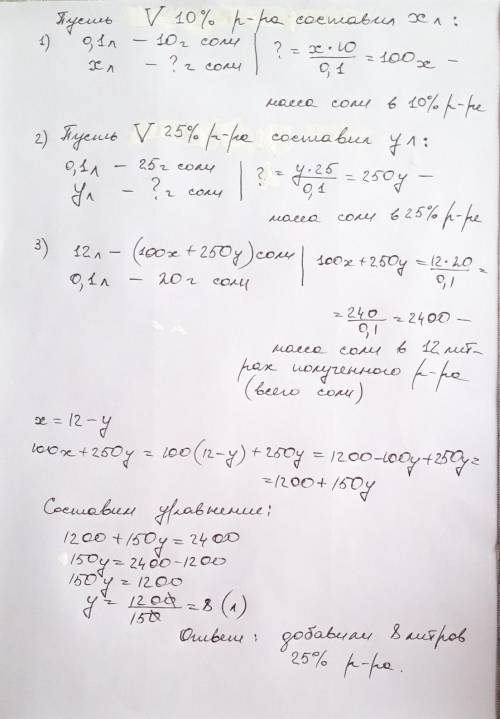 Пусть V 10% р-ра составил x л:
1) 0,1л – 10г соли | ? = x·10/0,1 = 100x –
xл – ? г соли
масса соли в 10% р-ре
2) Пусть V 25% р-ра составил y л:
0,1л – 25г соли | ? = y·25/0,1 = 250y –
yл – ? г соли
масса соли в 25% р-ре
3) 12л – (100x + 250y) соли | 100x + 250y = 12·20/0,1 =
0,1л – 20г соли
= 240/0,1 = 2400 –
масса соли в 12 лит-
рах полученного р-ра
(всего соли)
x = 12 – y
100x + 250y = 100(12-y) + 250y = 1200 – 100y + 250y =
= 1200 + 150y
Составим уравнение:
1200 + 150y = 2400
150y = 2400 – 1200
150y = 1200
y = 1200/150 = 8 (л)
Ответ: добавили 8 литров
25% р-ра.